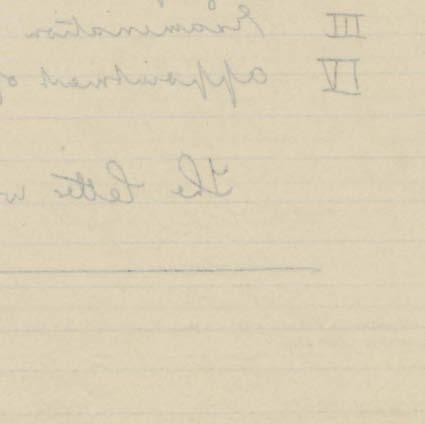 III Examination
IV appointment of
The letter